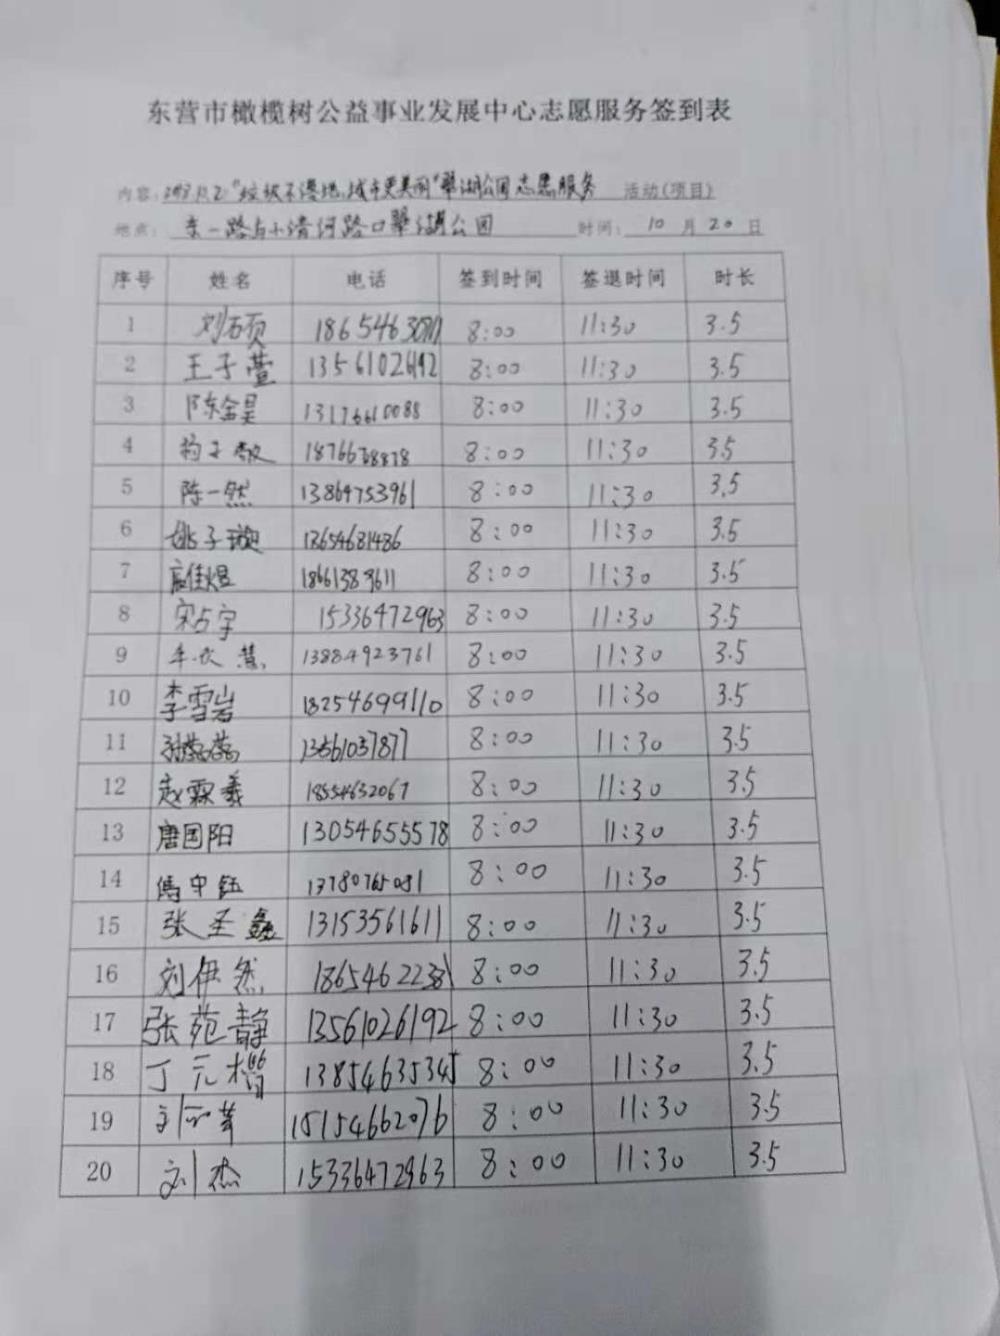 东营市橄榄树公益事业发展中心志愿服务签到表
内容："垃圾不落地,城市更美丽"翠湖公园志愿服务 活动(项目)
地点：东一路与小清河路口翠湖公园 时间：10月20日
序号 姓名 电话 签到时间 签退时间 时长
1 刘石页 8:00 11:30 3.5
2 王子萱 13561026192 8:00 11:30 3.5
3 陈金昊 13176610088 8:00 11:30 3.5
4 8:00 11:30 3.5
5 陈一然 13864753961 8:00 11:30 3.5
6 姚子璇 13654681486 8:00 11:30 3.5
7 佳煜 18661389611 8:00 11:30 3.5
8 宋占宇 15336472963 8:00 11:30 3.5
9 13884923761 8:00 11:30 3.5
10 李雪岩 18254699110 8:00 11:30 3.5
11 13561037877 8:00 11:30 3.5
12 赵霖羲 18554632067 8:00 11:30 3.5
13 唐国阳 13054655578 8:00 11:30 3.5
14 13780765081 8:00 11:30 3.5
15 张圣鑫 13153561611 8:00 11:30 3.5
16 刘伊然 18654622381 8:00 11:30 3.5
17 张苑静 13561026192 8:00 11:30 3.5
18 丁元楷 13854635345 8:00 11:30 3.5
19 15154662076 8:00 11:30 3.5
20 刘杰 15336472963 8:00 11:30 3.5